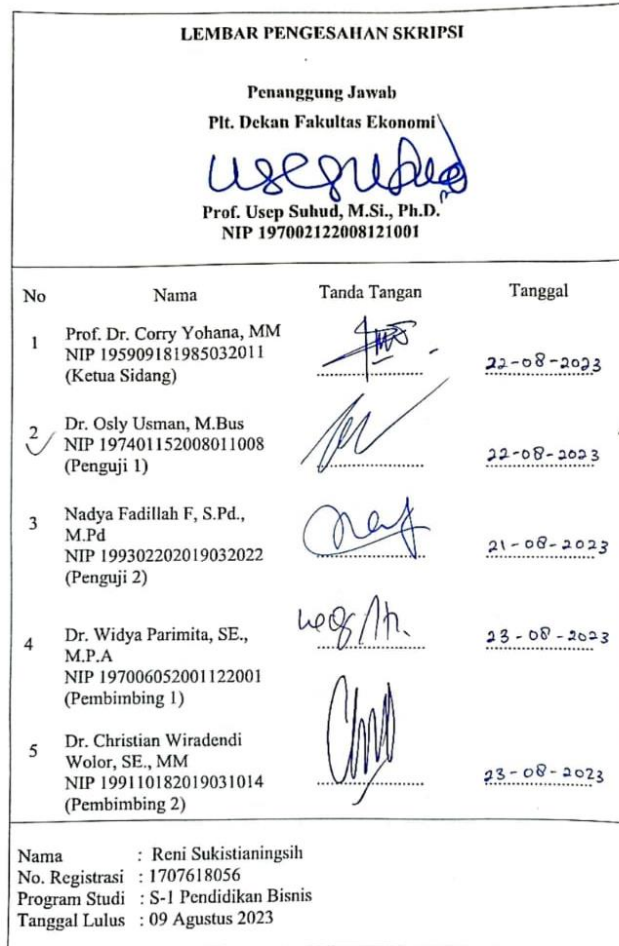 LEMBAR PENGESAHAN SKRIPSI
Penanggung Jawab
Plt. Dekan Fakultas Ekonomi
Prof. Usep Suhud, M.Si., Ph.D.
NIP 197002122008121001
No Nama Tanda Tangan Tanggal
1 Prof. Dr. Corry Yohana, MM
NIP 195909181985032011
(Ketua Sidang)
22-08-2023
2 Dr. Osly Usman, M.Bus
NIP 197401152008011008
(Penguji 1)
22-08-2023
3 Nadya Fadillah F, S.Pd.,
M.Pd
NIP 199302202019032022
(Penguji 2)
21-08-2023
4 Dr. Widya Parimita, SE.,
M.P.A
NIP 197006052001122001
(Pembimbing 1)
23-08-2023
5 Dr. Christian Wiradendi
Wolor, SE., MM
NIP 199110182019031014
(Pembimbing 2)
23-08-2023
Nama : Reni Sukistianingsih
No. Registrasi : 1707618056
Program Studi : S-1 Pendidikan Bisnis
Tanggal Lulus : 09 Agustus 2023